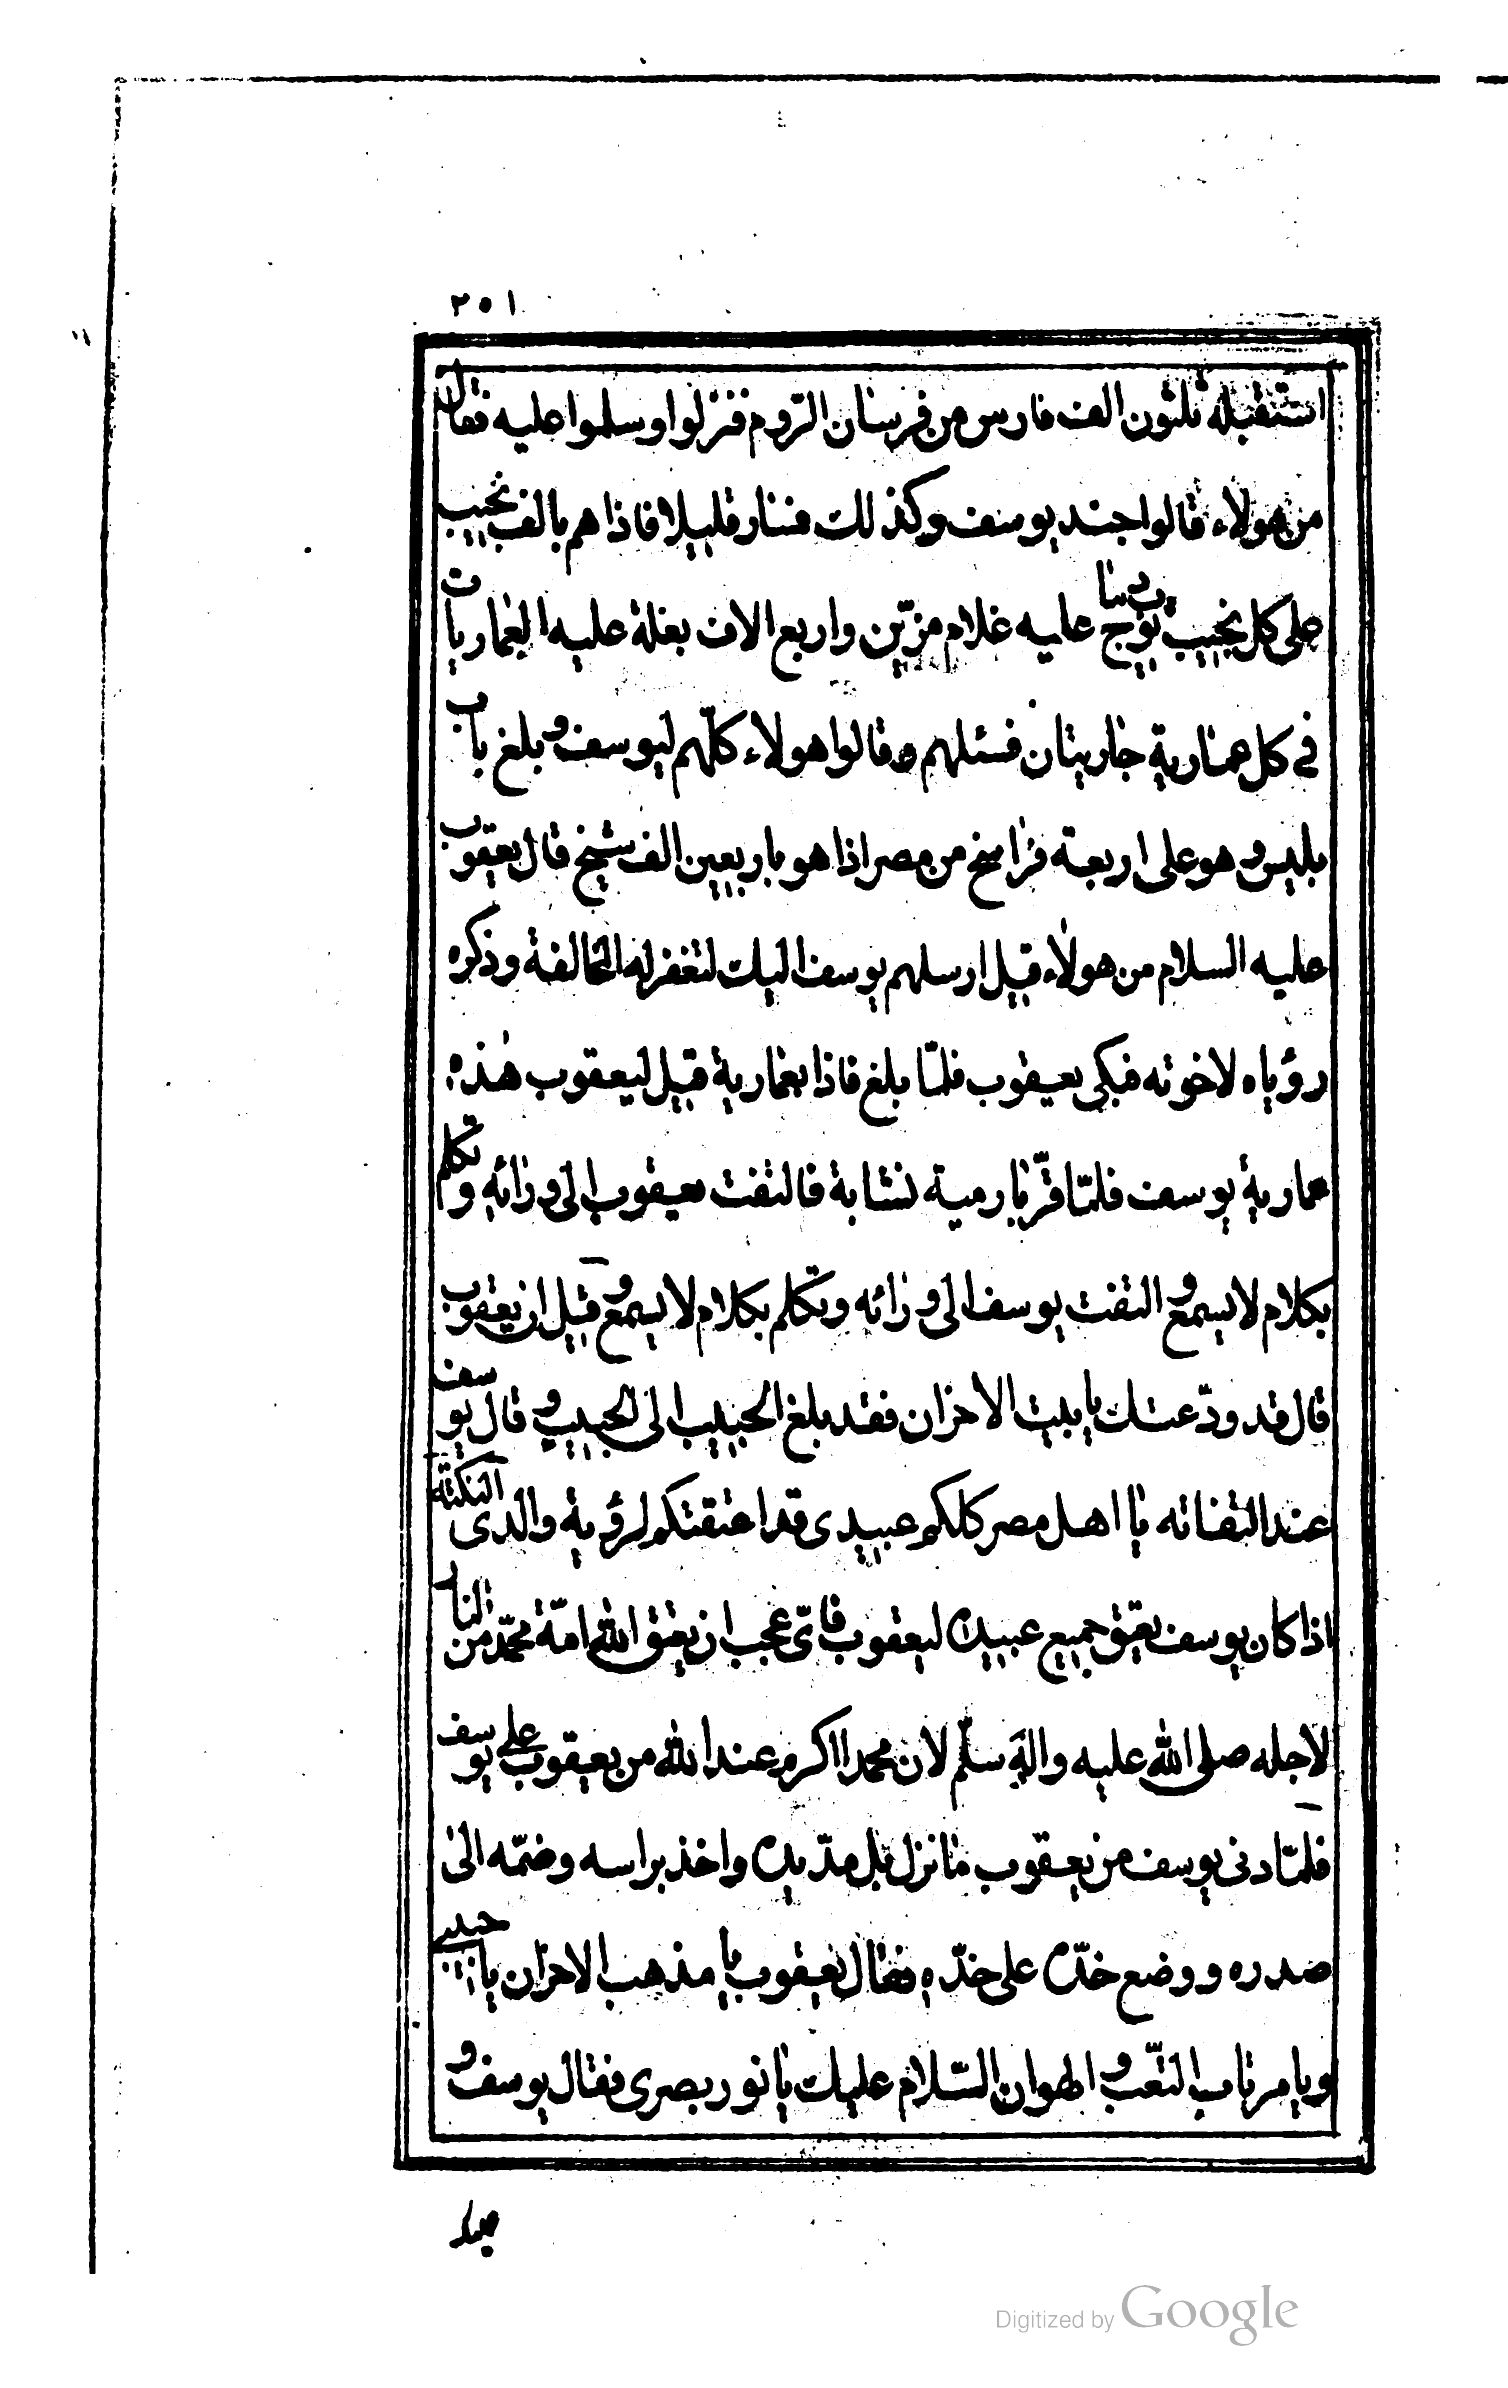 ٢٥١
استقبله ثلثون الف فارس من فرسان الرّوم فنزلوا وسلموا عليه فقال
من هولاء قالوا جند يوسف وكذلك فسار قليلا فاذا هم بالف نجيب
على كل نجيب عليه غلام مزيّن واربع الاف بغلة عليه العماريات
في كل عمارية جاريتان فسئلهم وقالوا هولاء كلّهم ليوسف وبلغ باب
بلبيس وهو على اربعة فراسخ من مصر اذا هو باربعين الف شيخ قال يعقوب
عليه السلام من هولاء قيل ارسلهم يوسف اليك لتغفر له المخالفة وذكره
رؤياه لاخوته فبكى يعيقوب فلمّا بلغ فاذا بعمارية قيل ليعقوب هذه
عمارية يوسف فلمّا قرّبا رمية نشابة فالتفت يعيقوب الى ورائه وتكلم
بكلام لا يسمع والتفت يوسف الى ورائه وتكلم بكلام لا يسمع وقيل ان يعقوب
قال قد ودّعتك يا بيت الاحزان فقد بلغ الحبيب الى الحبيب وقال يوسف
عند التفاته يا اهل مصر كلكم عبيدى قد اعتقتكم لرؤية والدى النكتة
اذا كان يوسف يعتق جميع عبيده ليعقوب فاىّ عجب ان يعتق الله امّة محمّد من النار
لاجله صلى الله عليه واله سلّم لان محمدا اكرم عند الله من يعيقوب على يوسف
فلمّا دنى يوسف من يعيقوب ما نزل بل مدّ يده واخذ براسه وضمّه الى
صدره ووضع خدّه على خدّه فقال يعيقوب يا مذهب الاحزان يا حبيبى
ويا مرتاب التّعب والهوان السّلام عليك يا نور بصرى فقال يوسف و
Digitized by Google